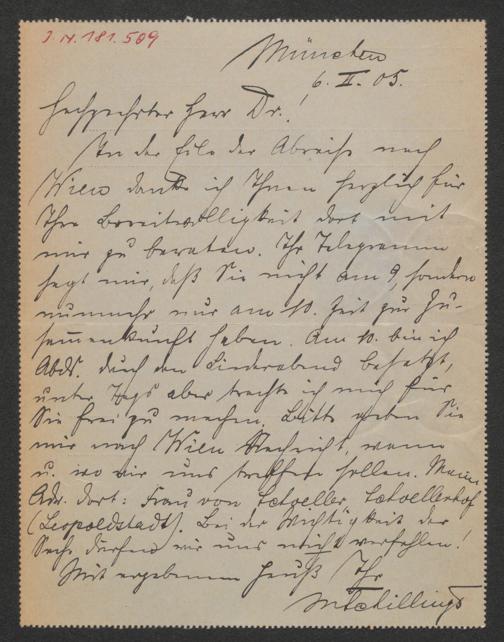 J.N. 181.509
München
6. II. 05.
Hochgeehrter Herr Dr.!
In der Eile der Abreise nach
Wien danke ich Ihnen herzlich für
Ihre Bereitwilligkeit dort mit
mir zu beraten. Ihr Telegramm
sagt mir, daß Sie nicht am 9, sondern
nunmehr nur am 10. Zeit zur Zu-
sammenkunft haben. Am 10. bin ich
Abds. durch den Liederabend besetzt,
unter Tags aber trachte ich mich für
Sie frei zu machen. Bitte geben Sie
mir nach Wien Nachricht, wann
u. wo wir uns treffen sollen. Meine
Adr. dort: Frau von Schoeller, Schoellerhof
(Leopoldstadt). Bei der Wichtigkeit der
Sache dürfen wir uns nicht verfehlen!
Mit ergebenem Gruß Ihr
MSchillings